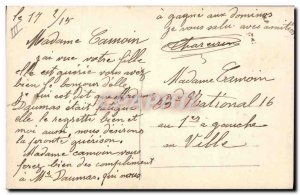 le 17 2/15
III
à gagné aux dominos
je vous salue avec amitié
Charcurin
Madame Camoin
j'ai vue votre fille
elle est guérie vous avez
bien le bonjour d'elle
Daumas était fatigué
elle le regrette bien et
moi aussi, nous désirons
la prompte guérison.
Madame Camoin vous
ferez bien des compliments
à Mr Daumas, qui nous
Madame Camoin
Bd National 16
au 1er à gauche
en Ville